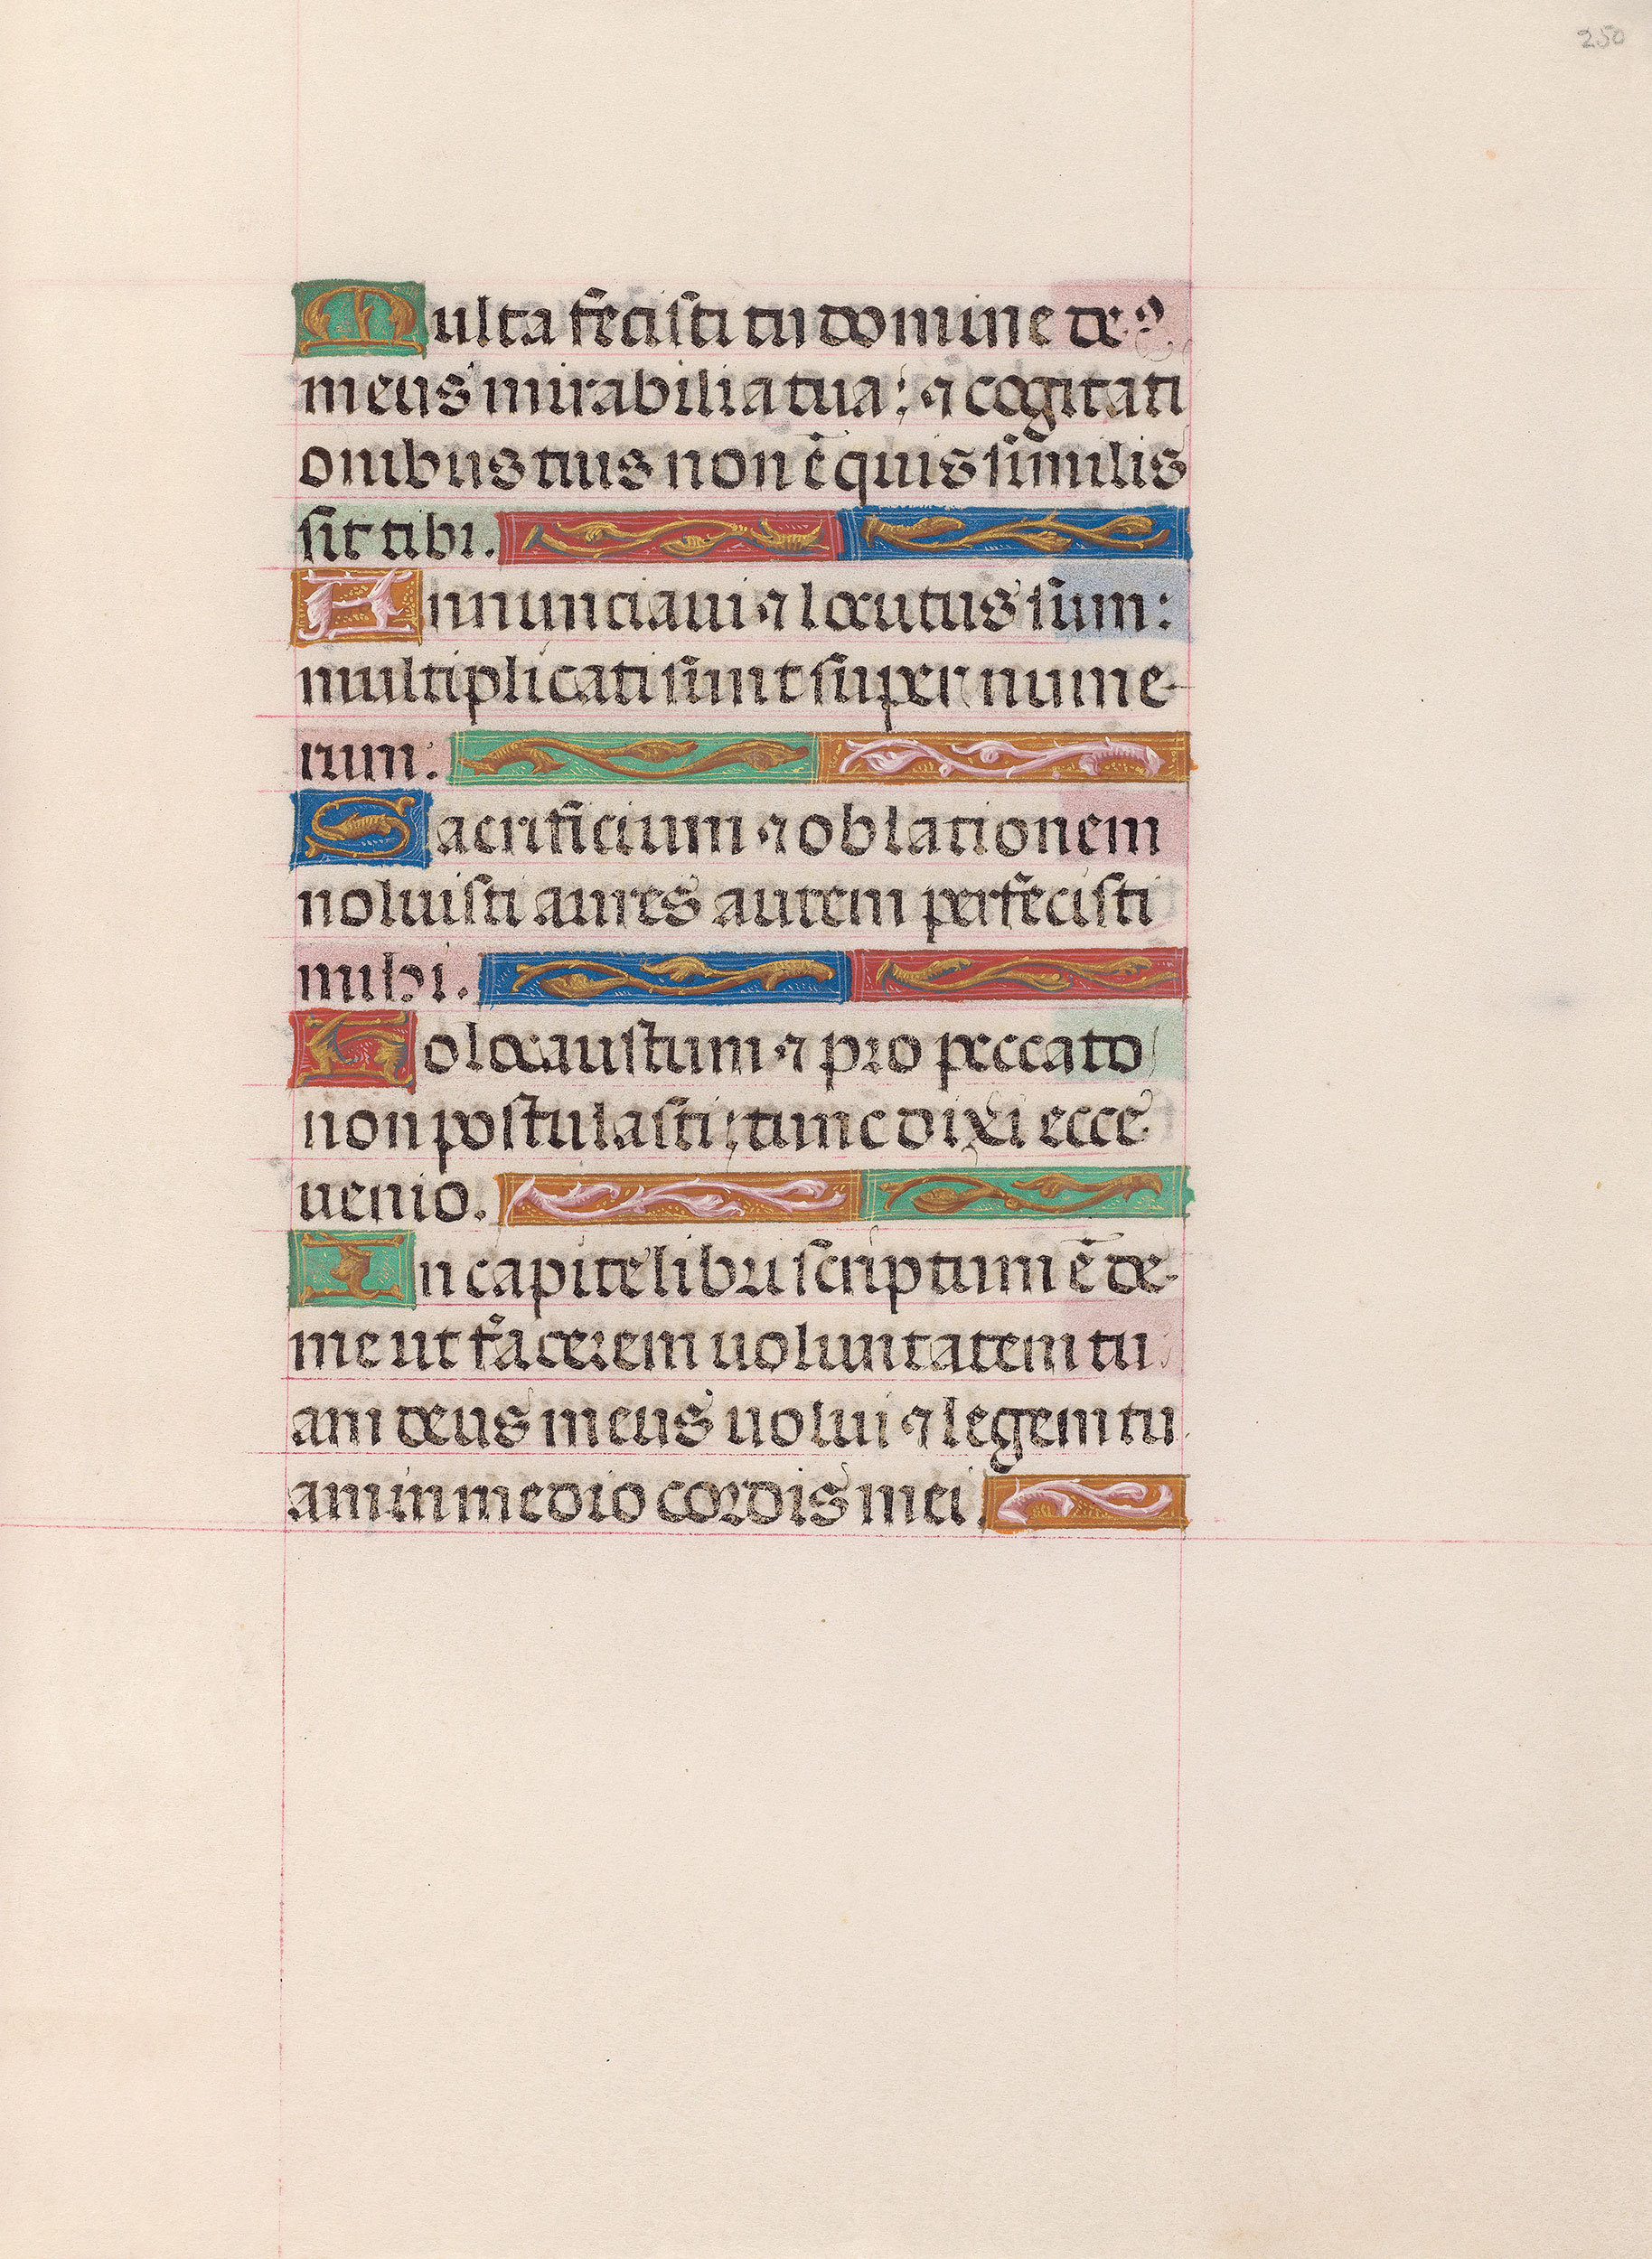 250
Multa fecisti tu domine de⁹
meus mirabilia tua: ⁊ cogitati
onibus tuis non ē quis similis
sit tibi.
Annunciaui ⁊ locutus sum:
multiplicati sunt super nume-
rum.
Sacrificium ⁊ oblationem
noluisti aures autem perfecisti
mihi.
Holocaustum ⁊ pro peccato
non postulasti: tunc dixi ecce
uenio.
In capite libri scriptum ē de
me ut facerem uoluntatem tu
am deus meus uolui ⁊ legem tu
am in medio cordis mei.